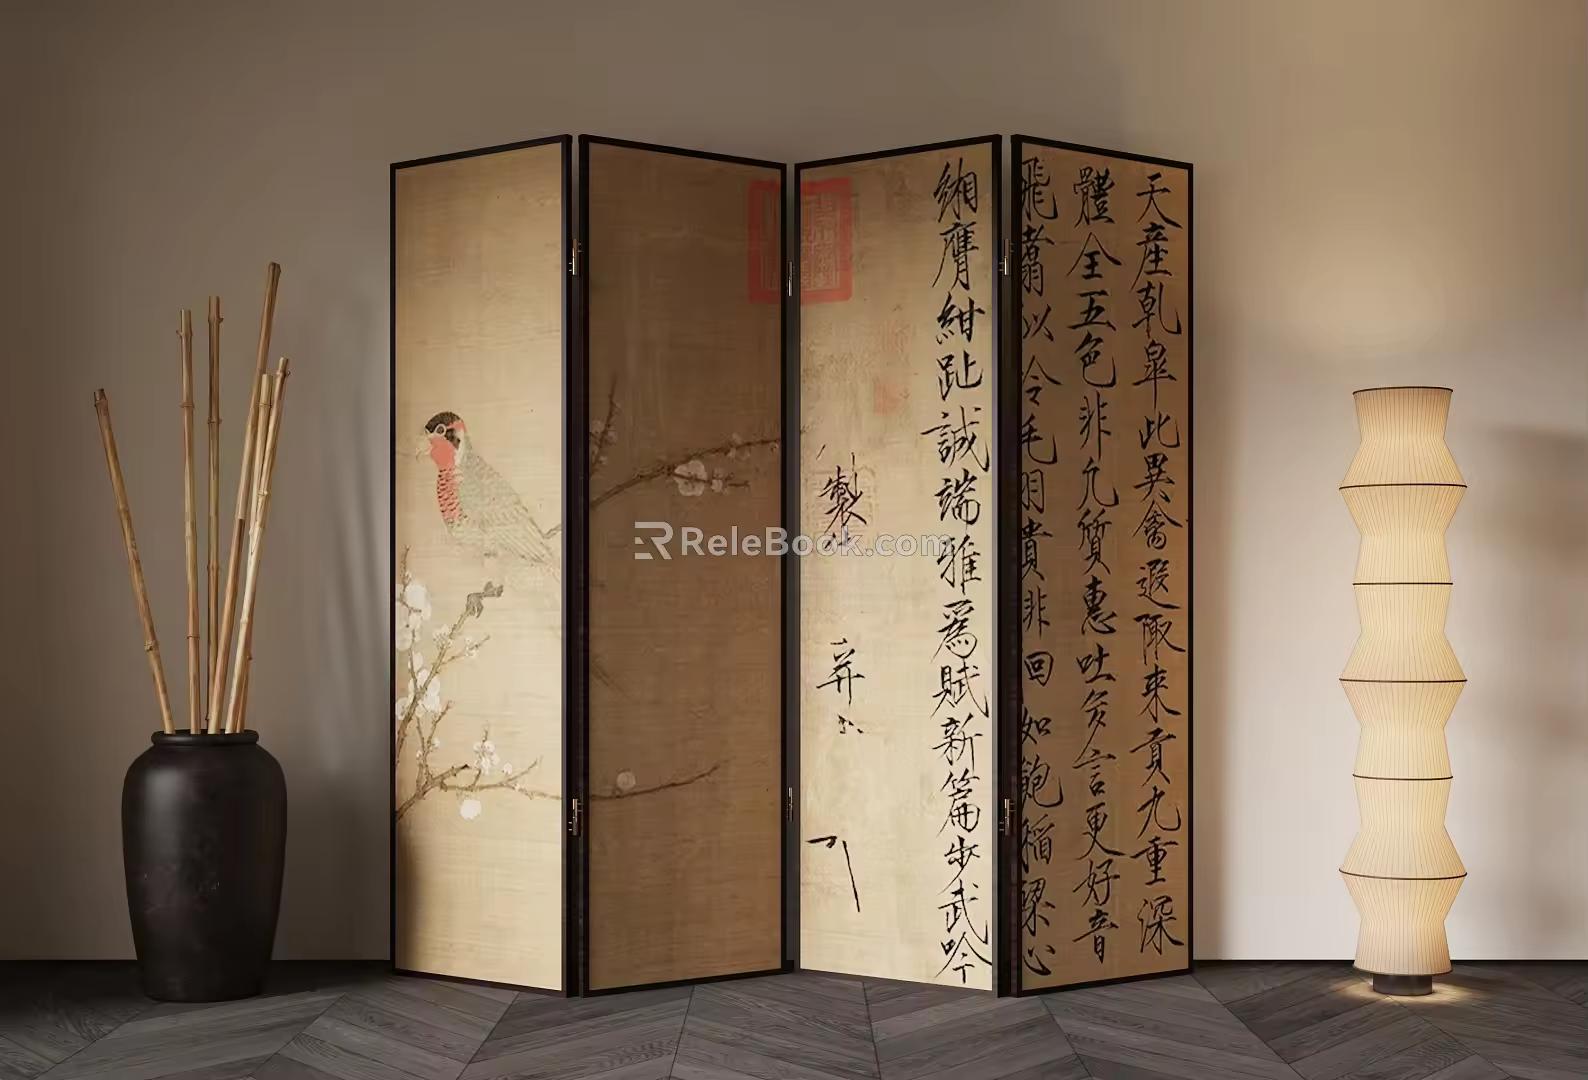 天産乾皐此異禽遐陬来貢九重深
體全五色非凡質惠吐多言更好音
飛翥以令毛羽貴非回如飽稻梁心
緗膺紺趾誠端雅爲賦新篇步武吟
製
ReleBook.com